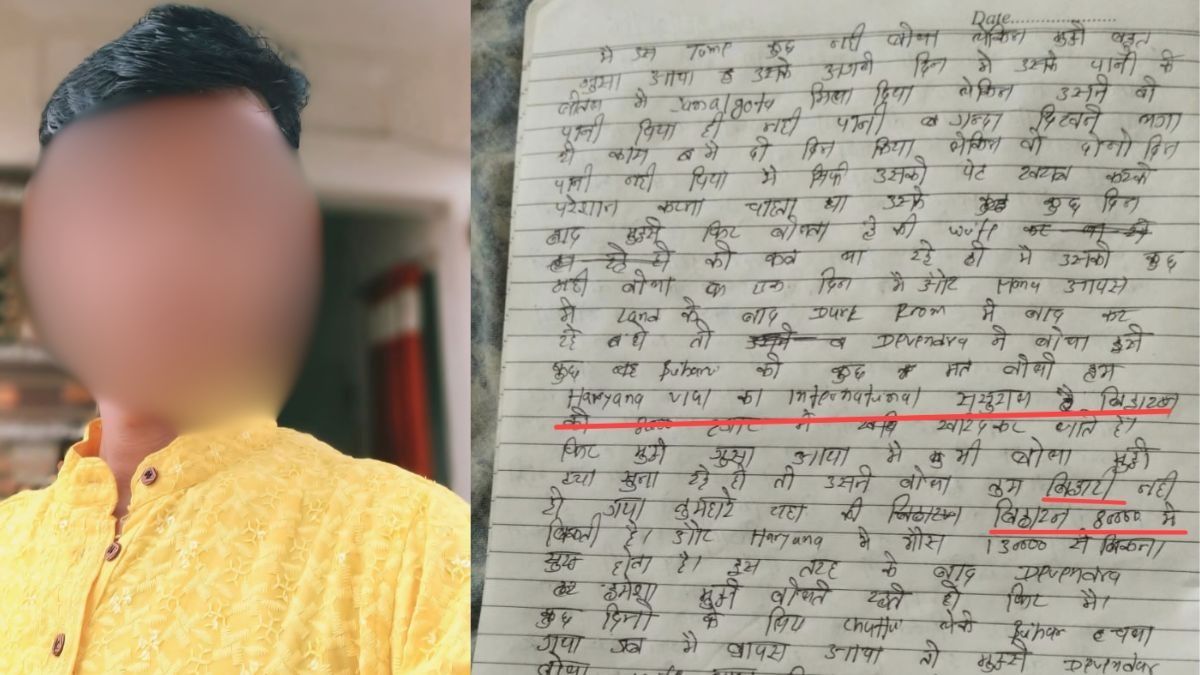 Date....................
मै उस Tome कुछ नही बोला लेकिन मुझे बहुत
गुसा आया उसके अगले दिन मे उसके पानी के
मे Jamalgota मिला दिया लेकिन उसने वो
पानी पिया ही नही पानी गन्दा दिखने लगा
ये काम मै दो दिन किया लेकिन वो दोनो दिन
पानी नही पिया मै सिर्फ उसको पेट खराब करके
परेशान करना चाहता था उसके कुछ दिन
बाद मुझसे फिर बोलता है की wife
को कब ला रहे हो मै उसको कुछ
नही बोला एक दिन मै और आपस
मे Land के बाद Room मे बात कर
रहे थे तो Devendra ने बोला इसे
कुछ Bihari को कुछ मत बोलो हम
Haryana का International ससुराल है बिहारन
को हजार मे खरीद कर लाते है।
फिर मुझे गुसा आया मै भी बोला मुझे
क्या सुना रहे हो तो उसने बोला तुम बिहारी नही
हो क्या तुमहारे यहा की बिहारन 80000 मे
बिकती है। और Haryana मे भैस 130000 से बिकना
होता है। इस तरह के बाद Devendra
हमेशा मुझे बोलते रहते थे फिर मै
कुछ दिनो के लिए chutti लेके Bihar चला
गया जब मै वापस आया तो मुझसे Devender
बोला